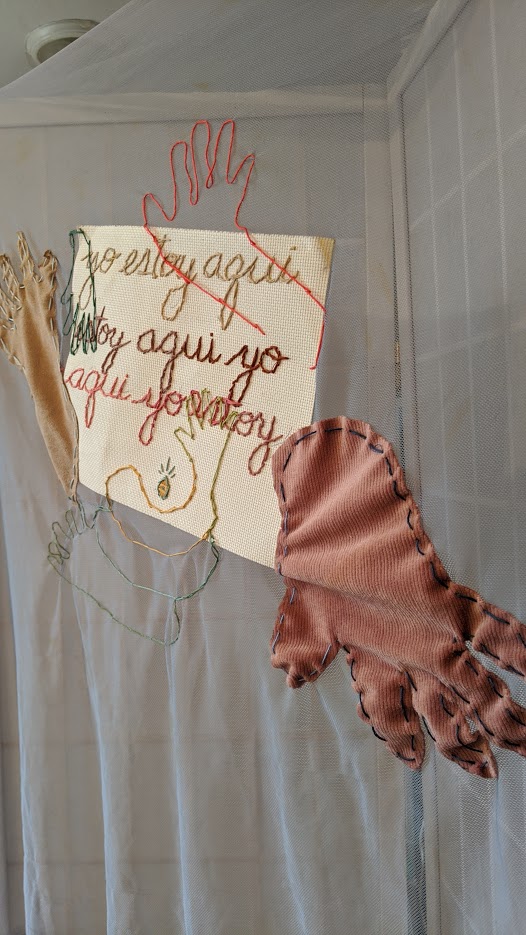 yo estoy aqui
estoy aqui yo
aqui yo estoy